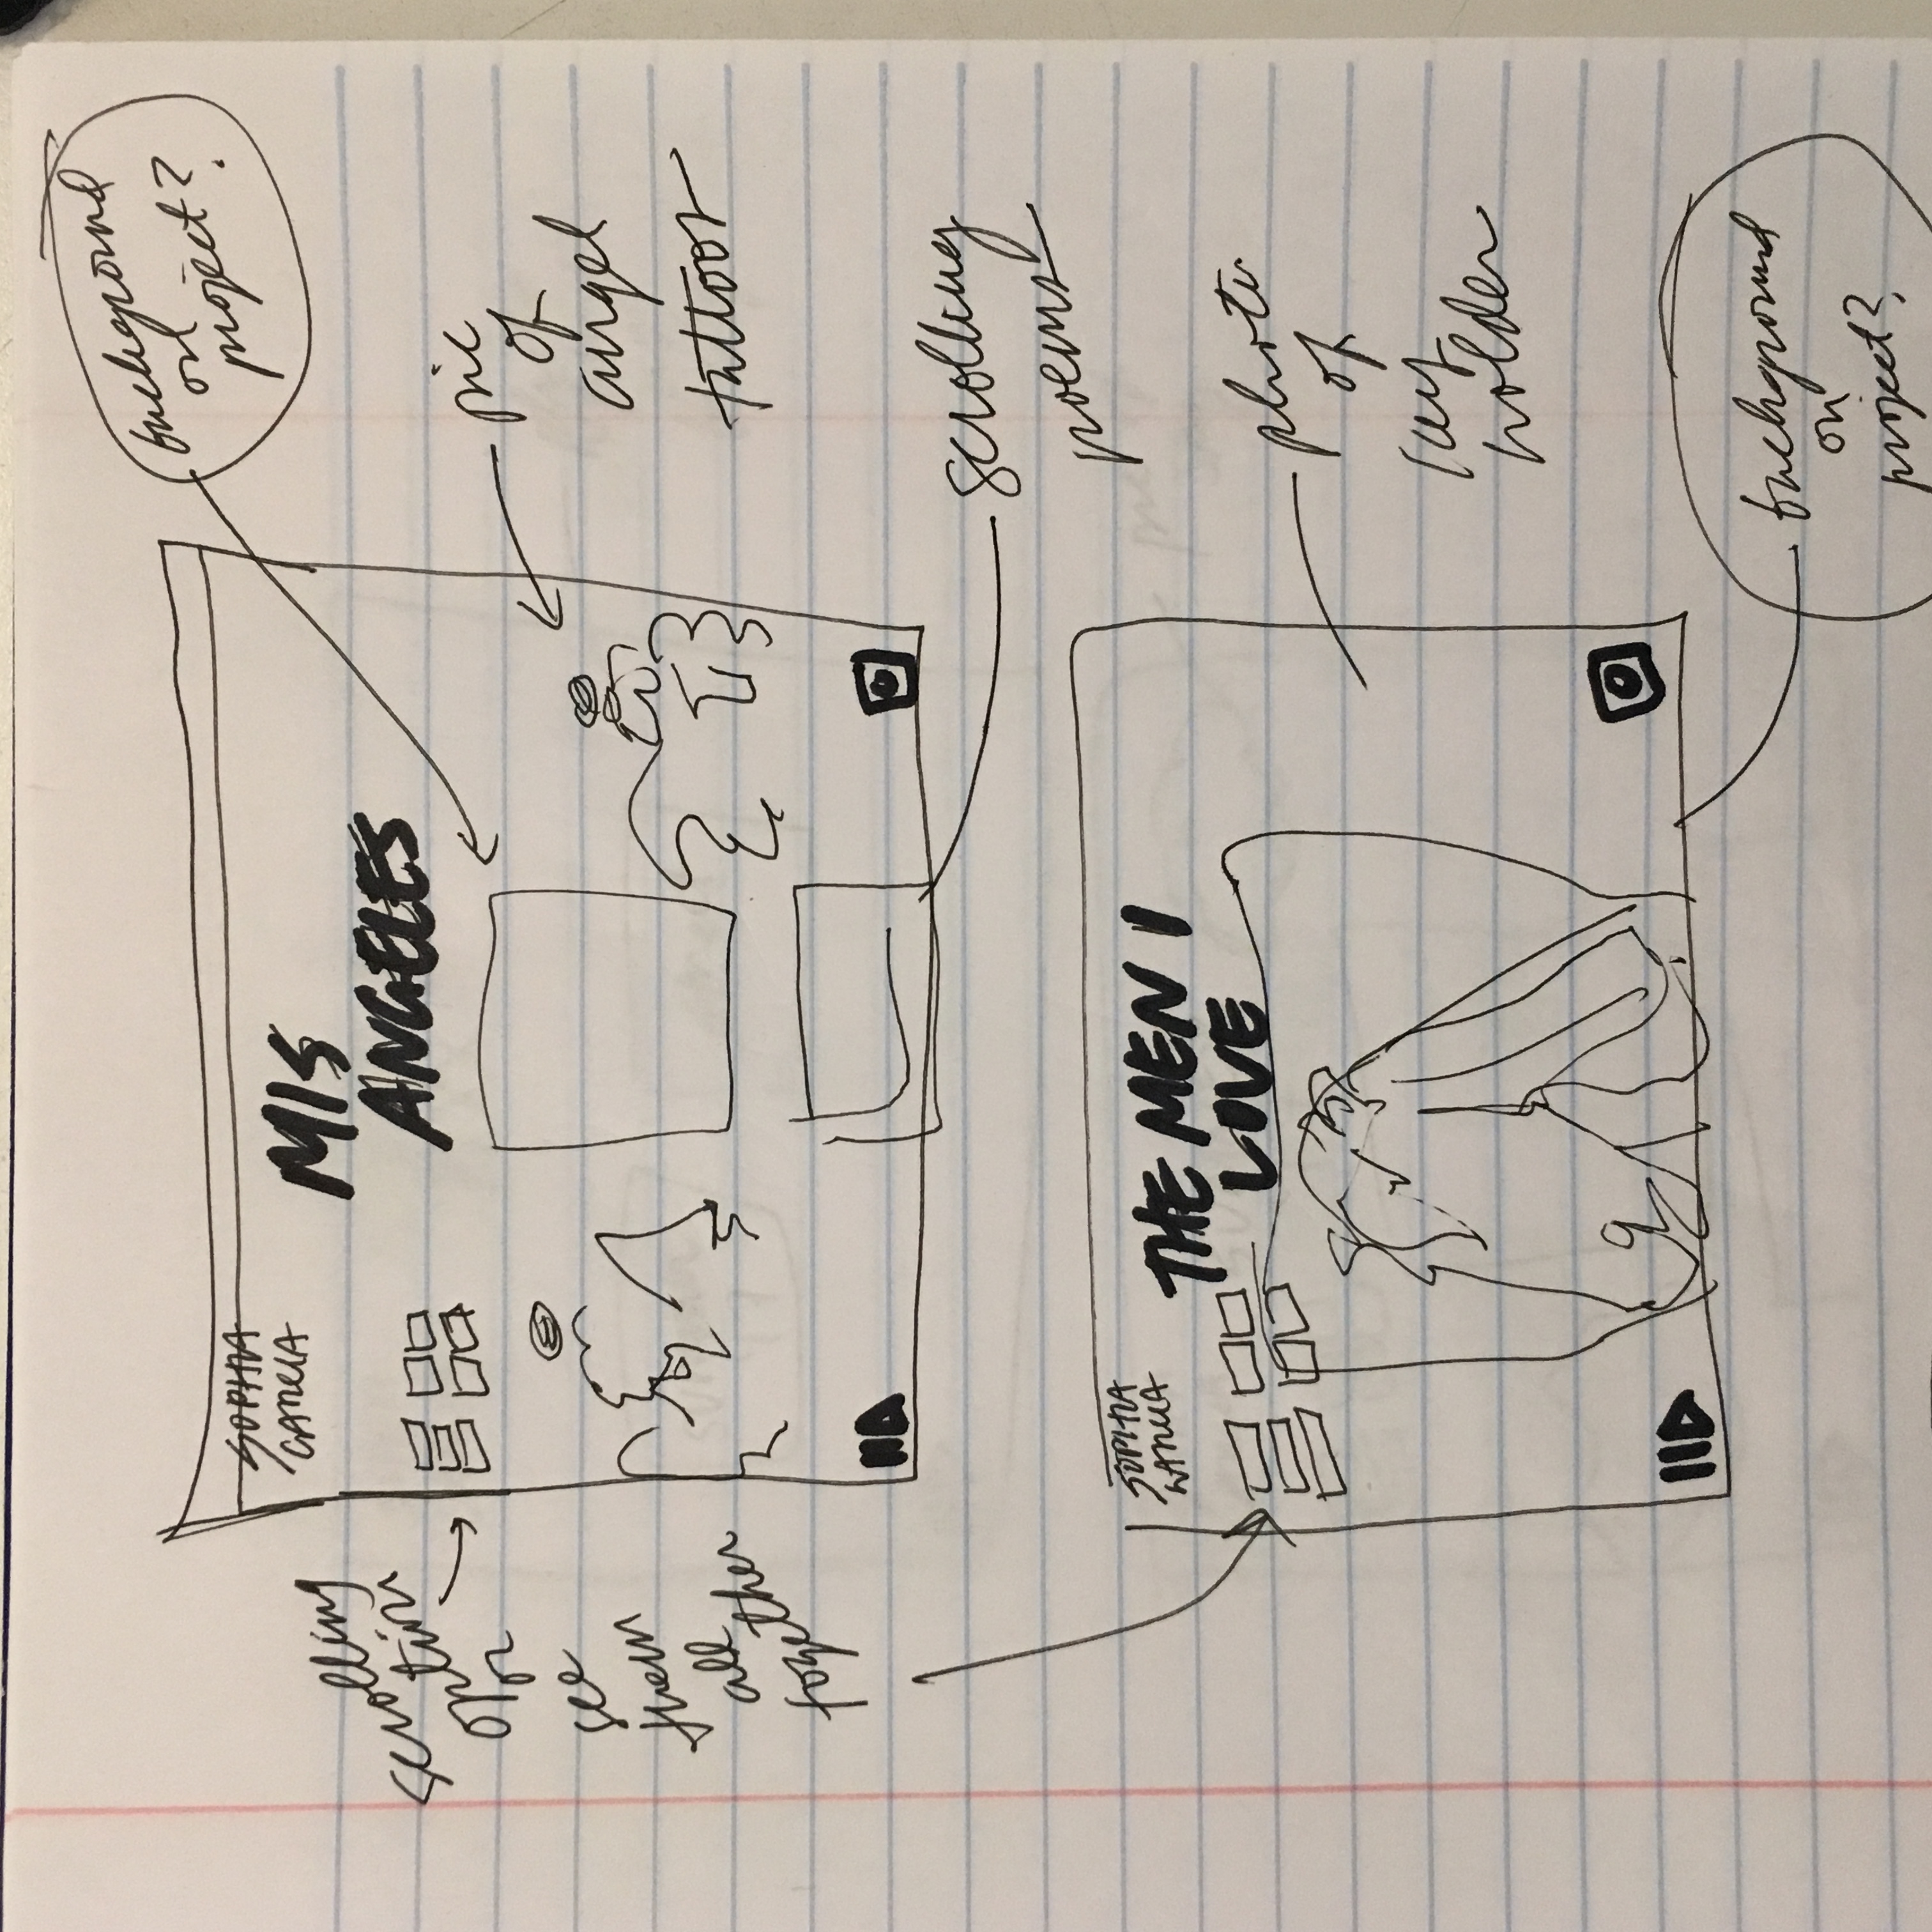 background
on
project?
SOPHIA
GARCIA
MIS
ANGELES
scrolling
option
or
see
them
all
together
pic
of
angel
tattoos
scrolling
poems
SOPHIA
GARCIA
THE MEN I
LOVE
photo
of
key
holder
background
on
project?